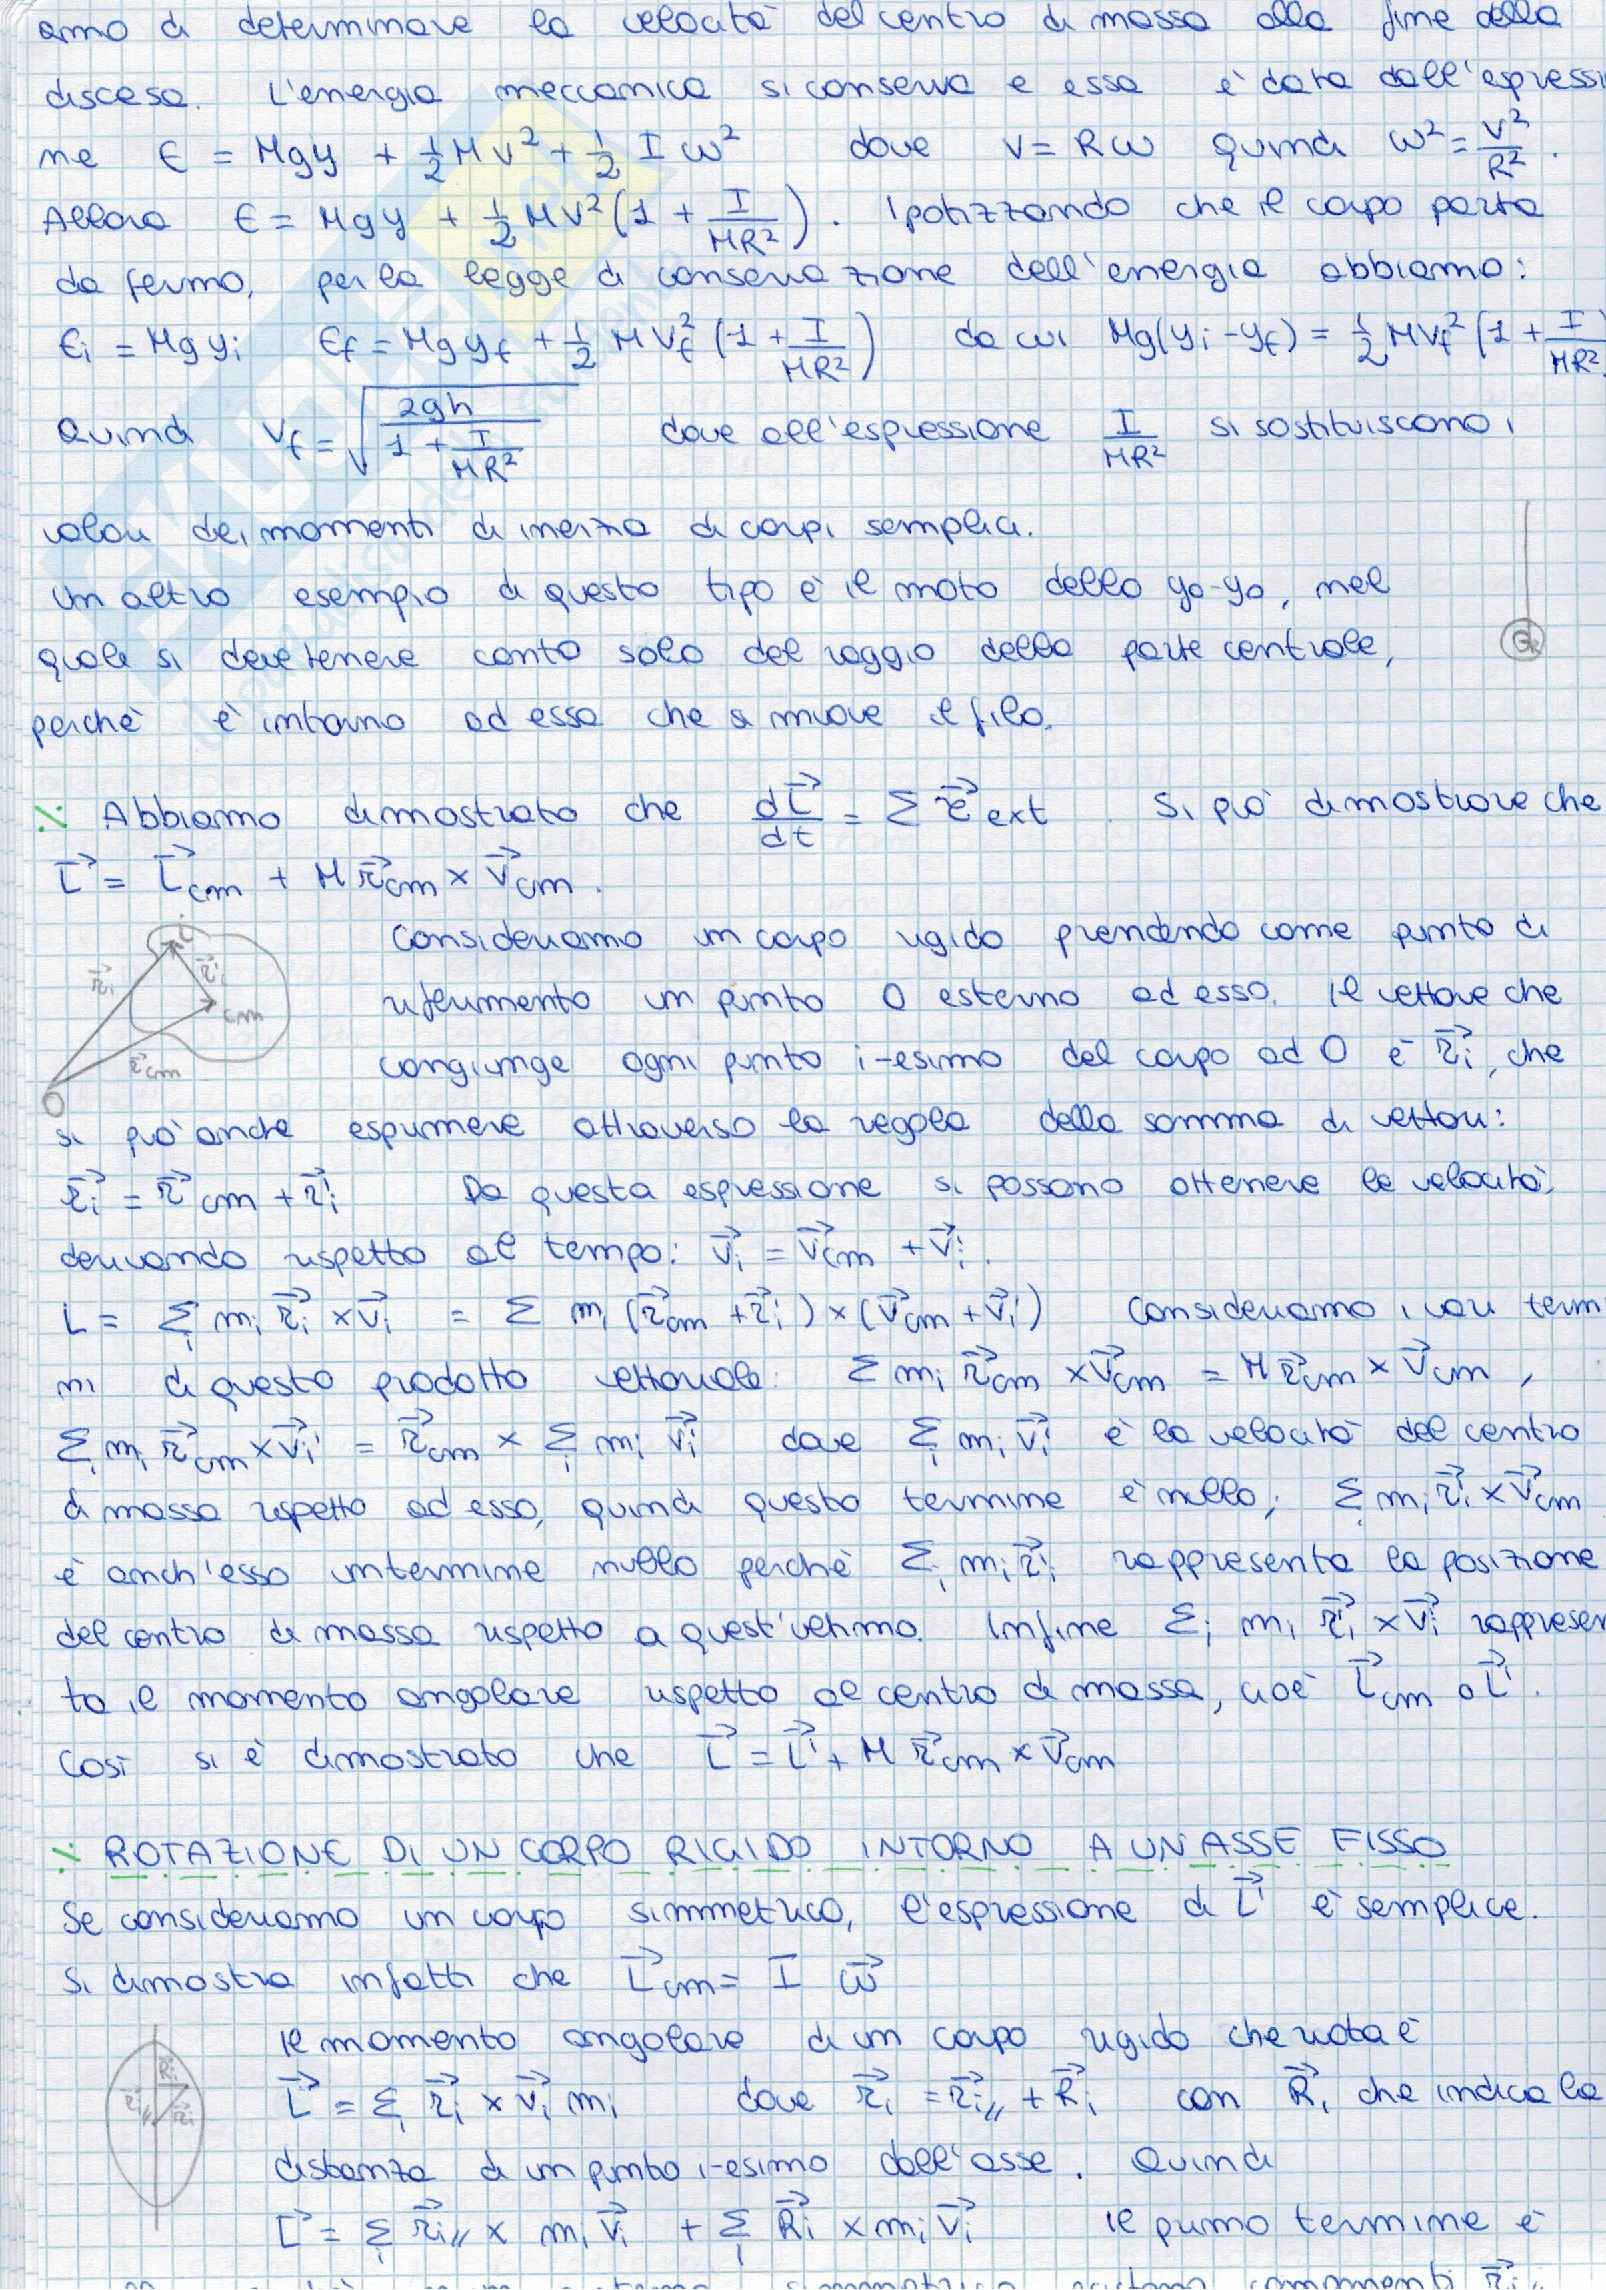 amo di determinare la velocità del centro di massa alla fine della
discesa. L'energia meccanica si conserva e essa è data dall'espressi
ne E = Mgy + 1/2 Mv² + 1/2 I ω² dove v = Rω quindi ω² = v²/R².
Allora E = Mgy + 1/2 Mv² (1 + I/MR²). Ipotizzando che il corpo parta
da fermo, per la legge di conservazione dell'energia abbiamo:
Ei = Mgyi Ef = Mgyf + 1/2 Mvf² (1 + I/MR²) da cui Mg(yi - yf) = 1/2 Mvf² (1 + I/MR²
Quindi vf = √(2gh / (1 + I/MR²)) dove all'espressione I/MR² si sostituiscono i
valori dei momenti di inerzia di corpi semplici.
Un altro esempio di questo tipo è il moto dello yo-yo, nel
quale si deve tenere conto solo del raggio della parte centrale,
perchè è intorno ad essa che si muove il filo.
Abbiamo dimostrato che dL⃗/dt = Σ τ⃗ ext. Si può dimostrare che
L⃗ = L⃗cm + M r⃗cm × v⃗cm.
Consideriamo un corpo rigido prendendo come punto di
riferimento un punto O esterno ad esso. Il vettore che
congiunge ogni punto i-esimo del corpo ad O è r⃗i, che
i
r⃗i
r⃗'i
cm
r⃗cm
O
si può anche esprimere attraverso la regola della somma di vettori:
r⃗i = r⃗cm + r⃗'i Da questa espressione si possono ottenere le velocità,
derivando rispetto al tempo: v⃗i = v⃗cm + v⃗'i.
L = Σi mi r⃗i × v⃗i = Σ mi (r⃗cm + r⃗'i) × (v⃗cm + v⃗'i) Consideriamo i vari termi
ni di questo prodotto vettoriale: Σ mi r⃗cm × v⃗cm = M r⃗cm × v⃗cm,
Σi mi r⃗cm × v⃗i' = r⃗cm × Σi mi v⃗i' dove Σi mi v⃗i' è la velocità del centro
di massa rispetto ad esso, quindi questo termine è nullo; Σi mi r⃗'i × v⃗cm
è anch'esso un termine nullo perchè Σi mi r⃗'i rappresenta la posizione
del centro di massa rispetto a quest'ultimo. Infine Σi mi r⃗'i × v⃗'i rappresen
ta il momento angolare rispetto al centro di massa, cioè L⃗cm o L⃗'.
Così si è dimostrato che L⃗ = L⃗' + M r⃗cm × v⃗cm
ROTAZIONE DI UN CORPO RIGIDO INTORNO A UN ASSE FISSO
Se consideriamo un corpo simmetrico, l'espressione di L⃗' è semplice.
Si dimostra infatti che L⃗cm = I ω⃗
Il momento angolare di un corpo rigido che ruota è
L⃗ = Σi r⃗i × v⃗i mi dove r⃗i = r⃗i// + R⃗i con R⃗i che indica la
distanza di un punto i-esimo dall'asse. Quindi
L⃗ = Σi r⃗i// × mi v⃗i + Σi R⃗i × mi v⃗i Il primo termine è
R⃗i
r⃗i//
r⃗i